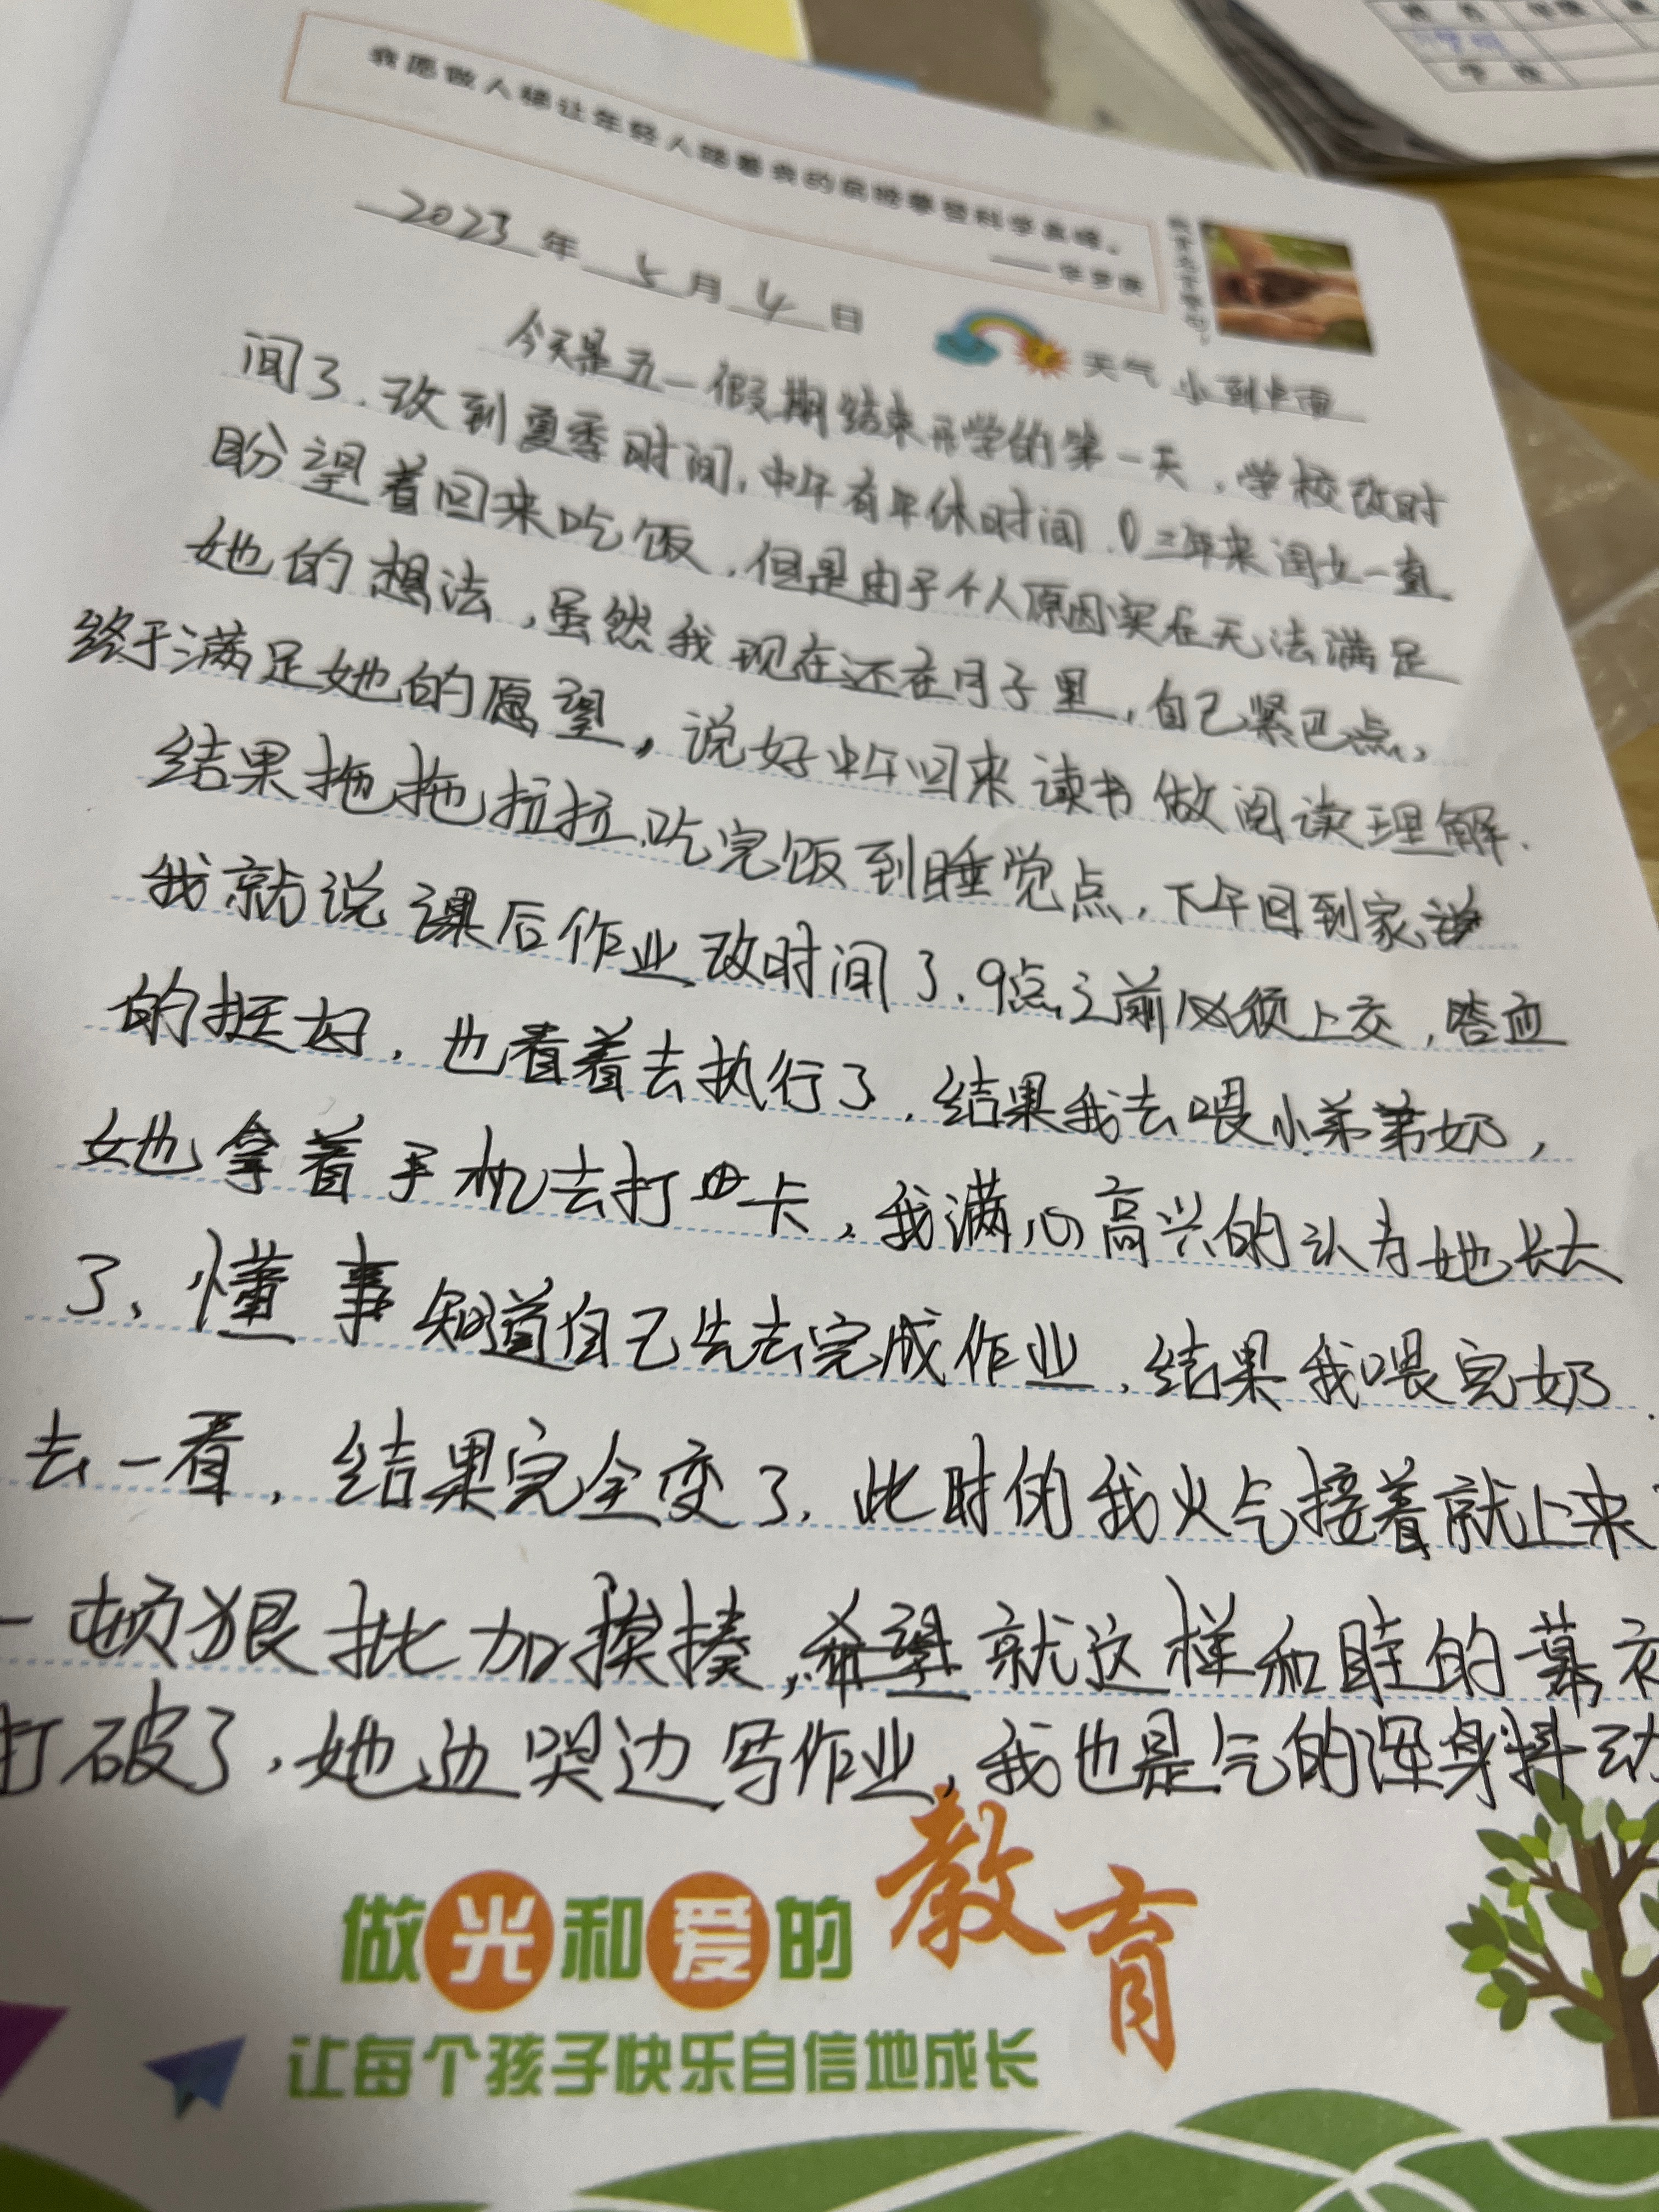 我愿做人梯让年轻人踏着我的肩膀攀登科学高峰。
——华罗庚
2023年5月4日
天气 小到中雨
今天是五一假期结束开学的第一天，学校改时
间了.改到夏季时间,中午有午休时间.三年来闺女一直
盼望着回来吃饭,但是由于个人原因实在无法满足
她的想法,虽然我现在还在月子里,自己紧巴点,
终于满足她的愿望,说好中午回来读书做阅读理解.
结果拖拖拉拉.吃完饭到睡觉点,下午回到家,
我就说课后作业改时间了.9点之前必须上交,答应
的挺好,也看着去执行了.结果我去喂小弟弟奶,
她拿着手机去打卡,我满心高兴的认为她长大
了、懂事知道自己先去完成作业,结果我喂完奶.
去一看,结果完全变了,此时的我火气接着就上来
一顿狠批加挨揍,希望就这样和睦的幕
打破了,她边哭边写作业,我也是气的浑身抖动
做光和爱的教育
让每个孩子快乐自信地成长